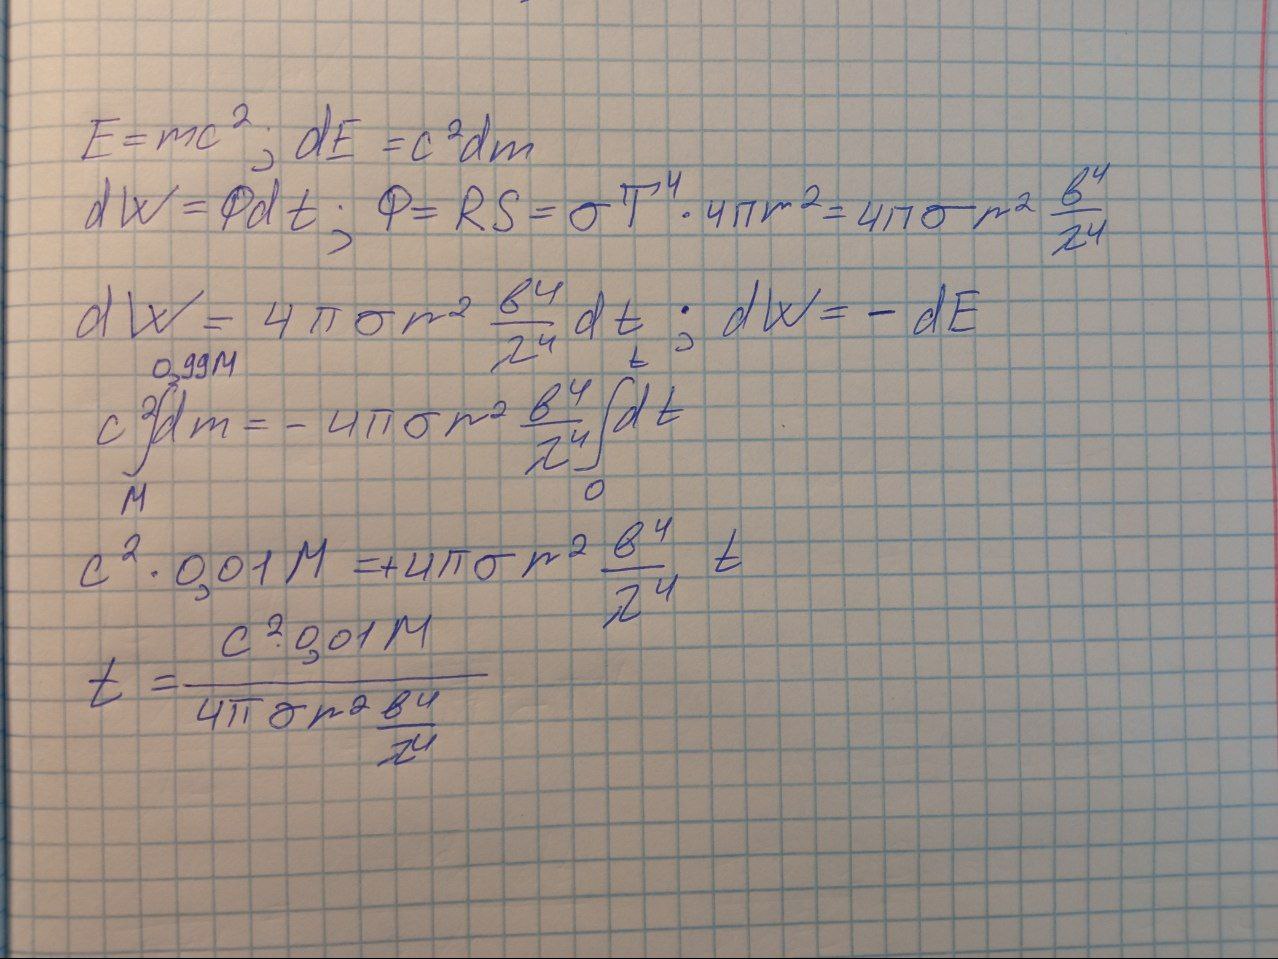 E = mc²; dE = c²dm
dW = Φdt; Φ = RS = σT⁴ · 4πr² = 4πσr² в⁴/λ⁴
dW = 4πσr² в⁴/λ⁴ dt; dW = - dE
c² ∫_M^{0,99M} dm = - 4πσr² в⁴/λ⁴ ∫_0^t dt
c² · 0,01M = +4πσr² в⁴/λ⁴ t
t = (c² · 0,01M)/(4πσr² в⁴/λ⁴)